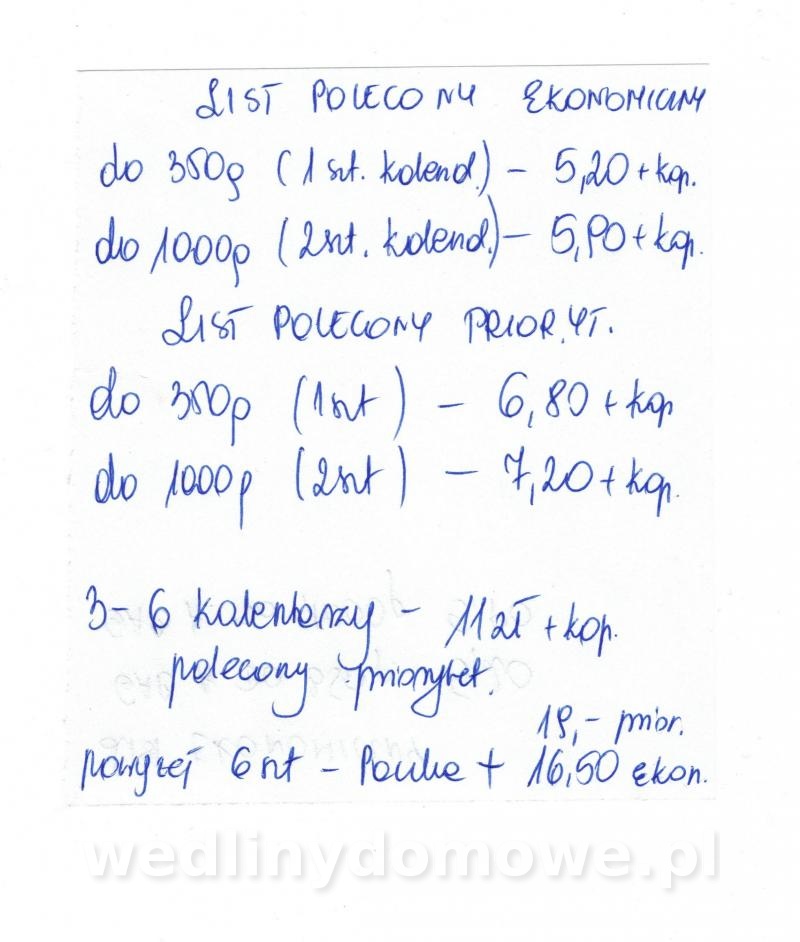 LIST POLECONY EKONOMICZNY
do 350g (1 szt. kalend.) - 5,20 + kop.
do 1000g (2szt. kalend.) - 5,90 + kop.
LIST POLECONY PRIORYT.
do 350g (1szt) - 6,80 + kop
do 1000g (2szt) - 7,20 + kop.
3-6 kalendarzy - 11 zł + kop.
polecony priorytet.
19,- prior.
powyżej 6 szt - Paczka + 16,50 ekon.
wedlinydomowe.pl